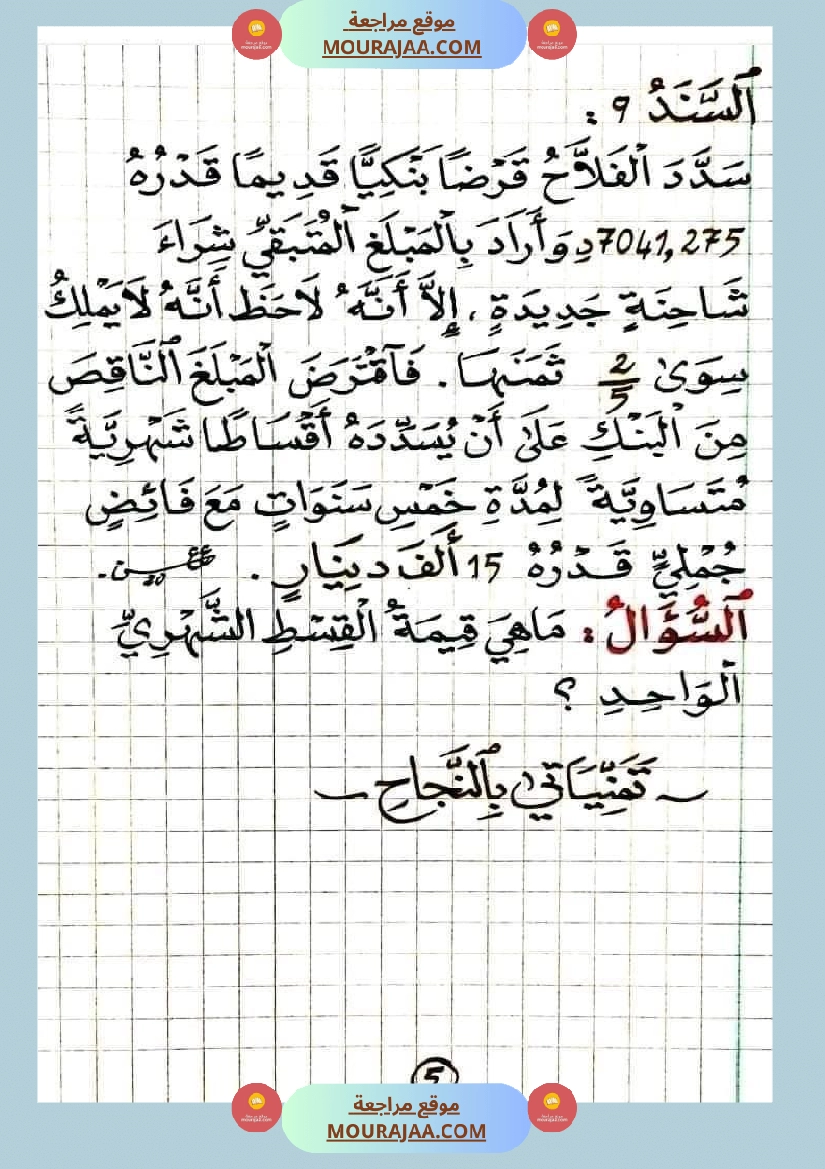 موقع مراجعة
MOURAJAA.COM
اَلسَّنَدُ 9 :
سَدَّدَ الْفَلاَّحُ قَرْضًا بَنْكِيًّا قَدِيمًا قَدْرُهُ
7041,275د وَأَرَادَ بِالْمَبْلَغِ الْمُتَبَقِّي شِرَاءَ
شَاحِنَةٍ جَدِيدَةٍ ، إِلاَّ أَنَّهُ لاَحَظَ أَنَّهُ لاَ يَمْلِكُ
سِوَى 2/5 ثَمَنِهَا . فَاقْتَرَضَ الْمَبْلَغَ النَّاقِصَ
مِنَ الْبَنْكِ عَلَى أَنْ يُسَدِّدَهُ أَقْسَاطًا شَهْرِيَّةً
مُتَسَاوِيَّةً لِمُدَّةِ خَمْسِ سَنَوَاتٍ مَعَ فَائِضٍ
جُمْلِيٍّ قَدْرُهُ 15 أَلْفَ دِينَارٍ .
اَلسُّؤَالُ : مَا هِيَ قِيمَةُ الْقِسْطِ الشَّهْرِيِّ
الْوَاحِدِ ؟
~ تَمَنِّيَاتِي بِالنَّجَاحِ ~
5
موقع مراجعة
MOURAJAA.COM